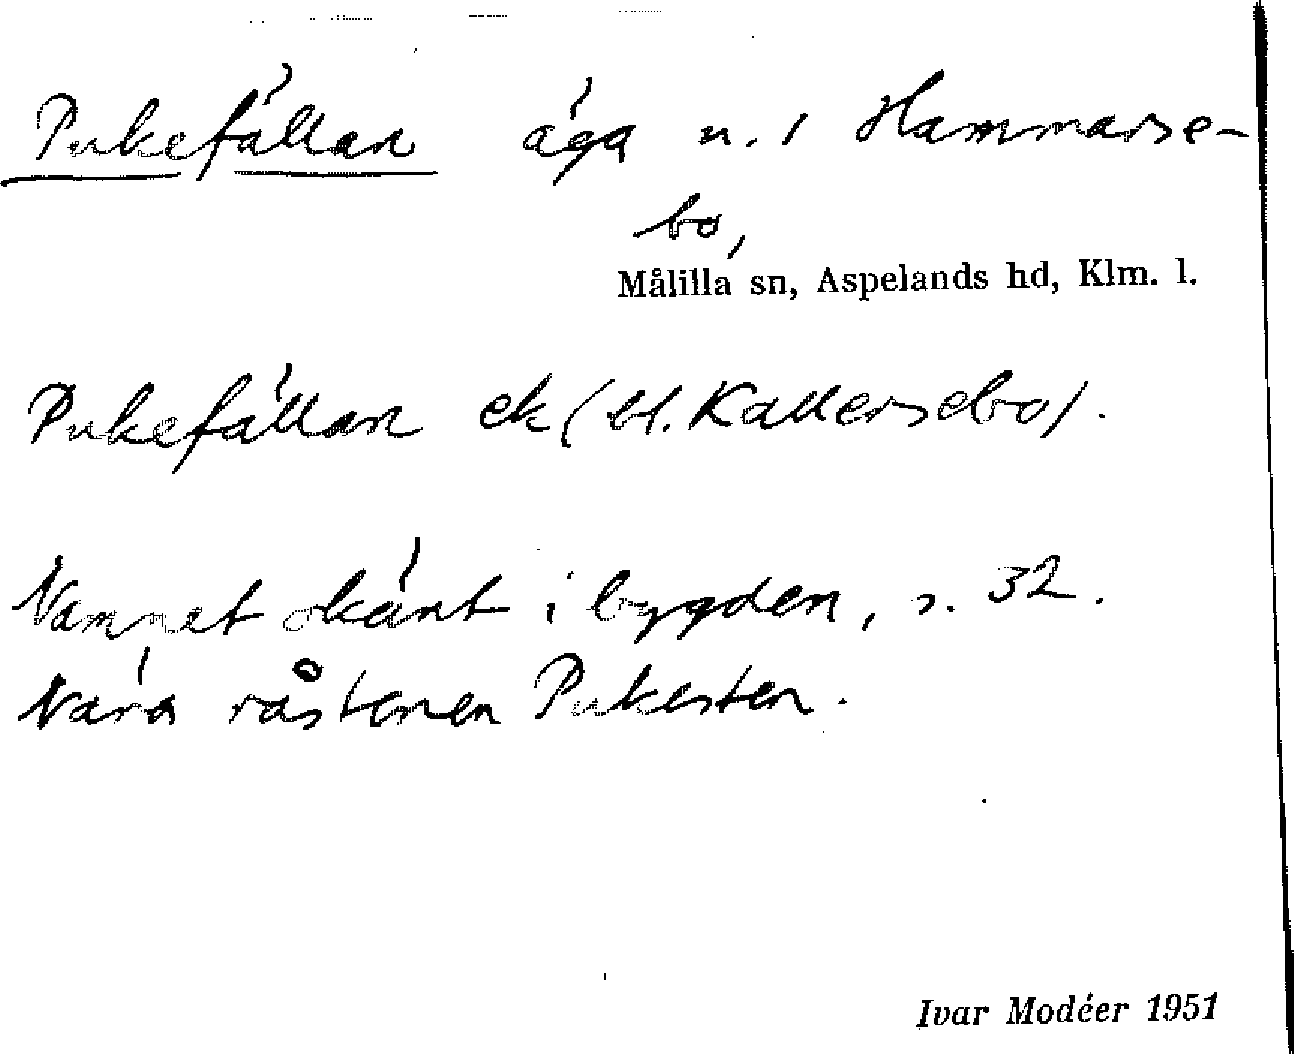 Pukefällan äga n. i Hammarse-
bo,
Målilla sn, Aspelands hd, Klm. l.
Pukefällan ek (bl. Kallersebo).
Namnet okänt i bygden, s. 32.
Nära råstenen Pukesten.
Ivar Modéer 1951